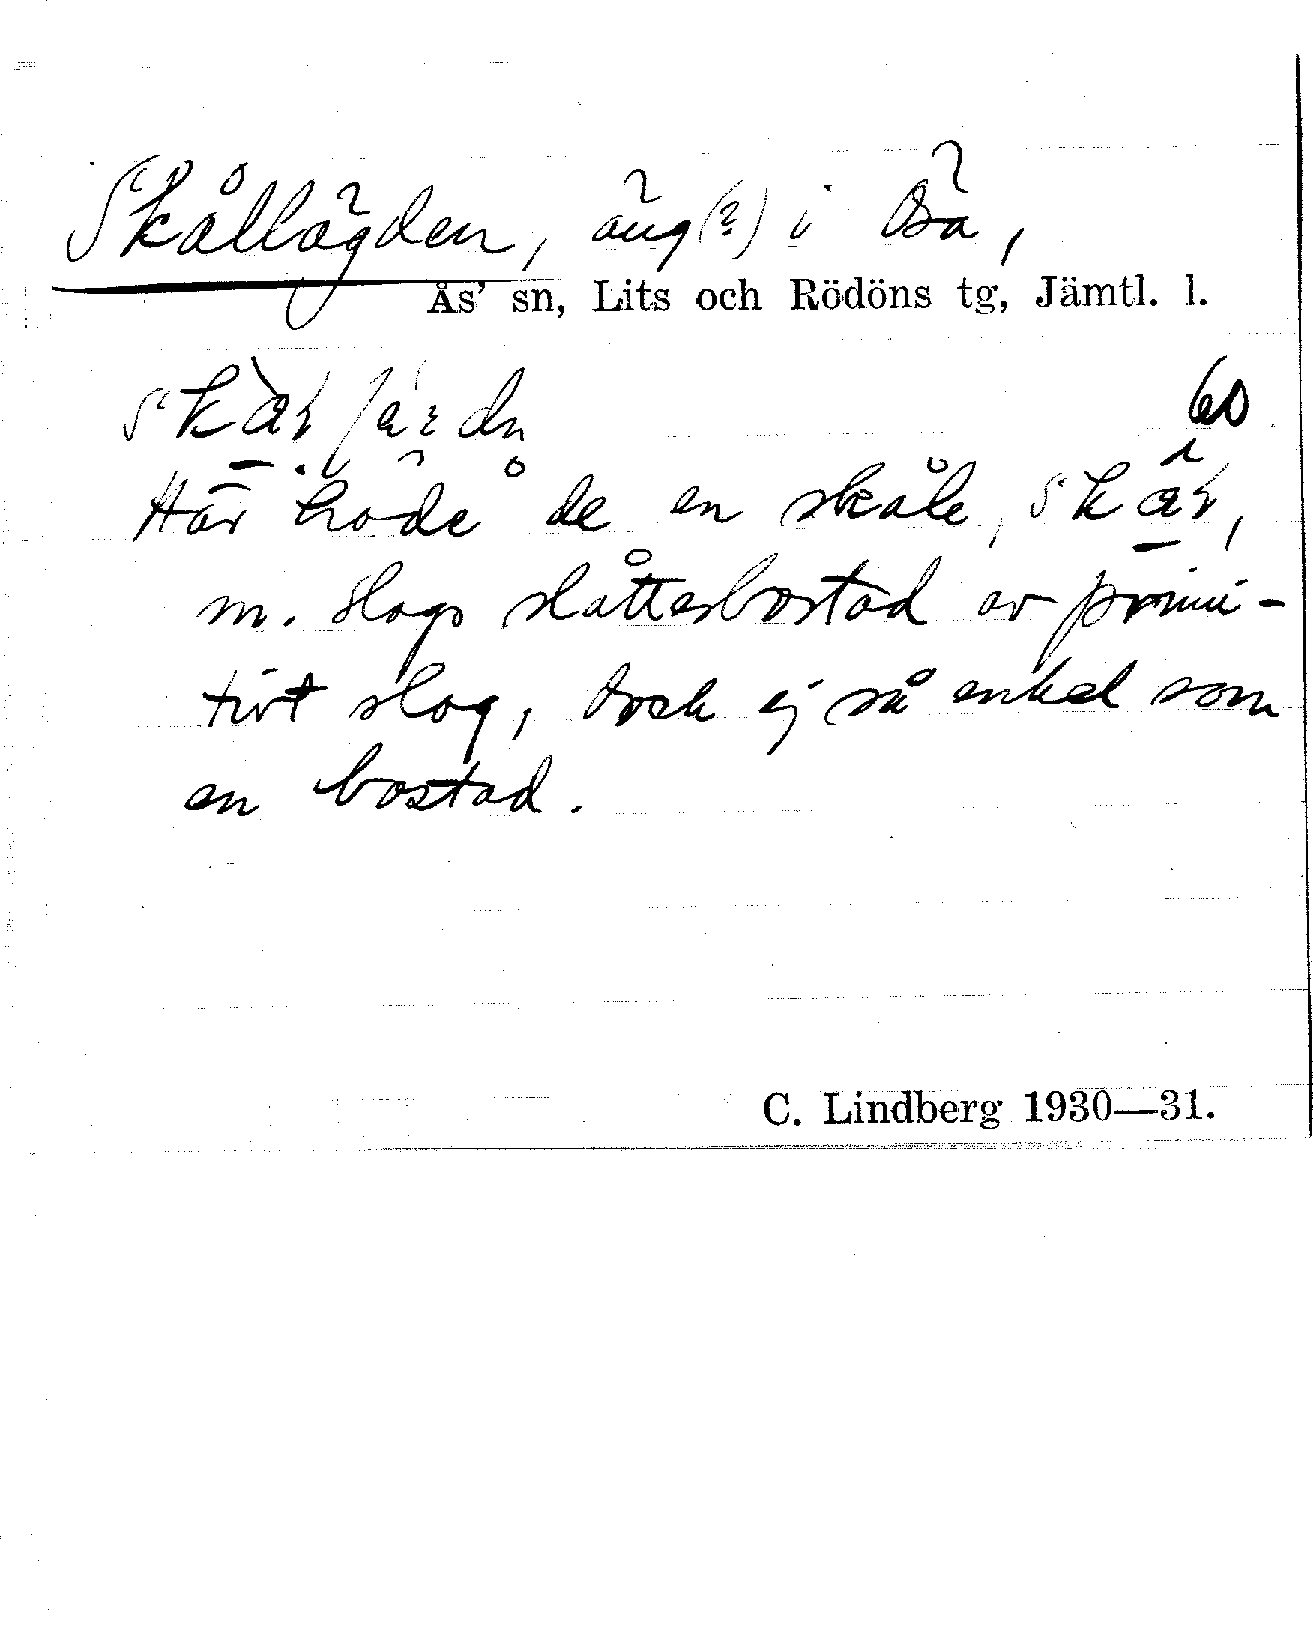 Skållägden, äng(?) i Bä,
Ås' sn, Lits och Rödöns tg, Jämtl. l.
60
Här hade de en skåle,
m. slags slåtterbostad av primi-
tivt slag, dock ej så enkel som
en bostad.
C. Lindberg 1930—31.